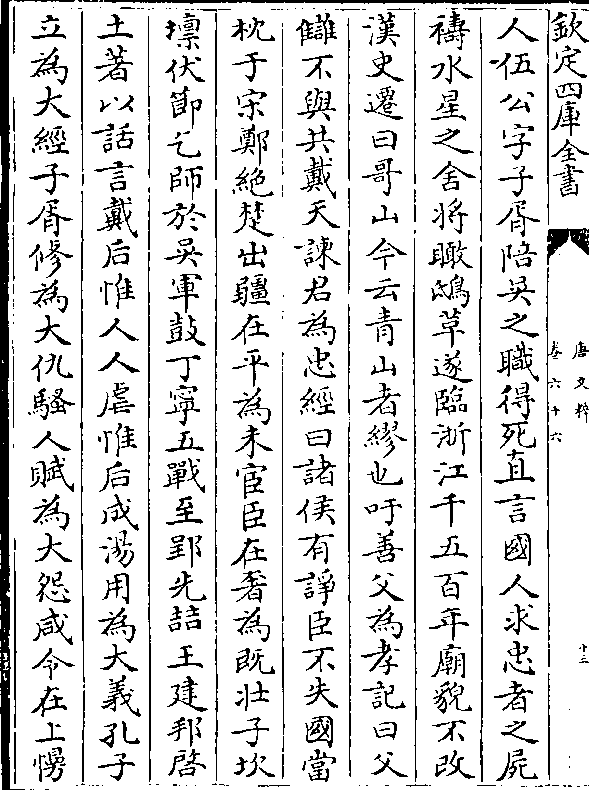 欽定四庫全書
唐文粹
卷六十六
十三
人伍公字子胥陪吳之職得死直言國人求忠者之屍
禱水星之舍將瞰鴟革遂臨浙江千五百年廟貌不改
漢史遷曰哥山今云青山者繆也吁善父為孝記曰父
讎不與共戴天諫君為忠經曰諸侯有諍臣不失國當
枕于宋鄭絶楚出疆在平為未宦臣在奢為既壯子坎
壈伏節乞師於吳軍鼓丁寧五戰至郢先喆王建邦啓
土著以話言戴后惟人人虐惟后成湯用為大義孔子
立為大經子胥修為大仇騷人賦為大怨咸令在上慢